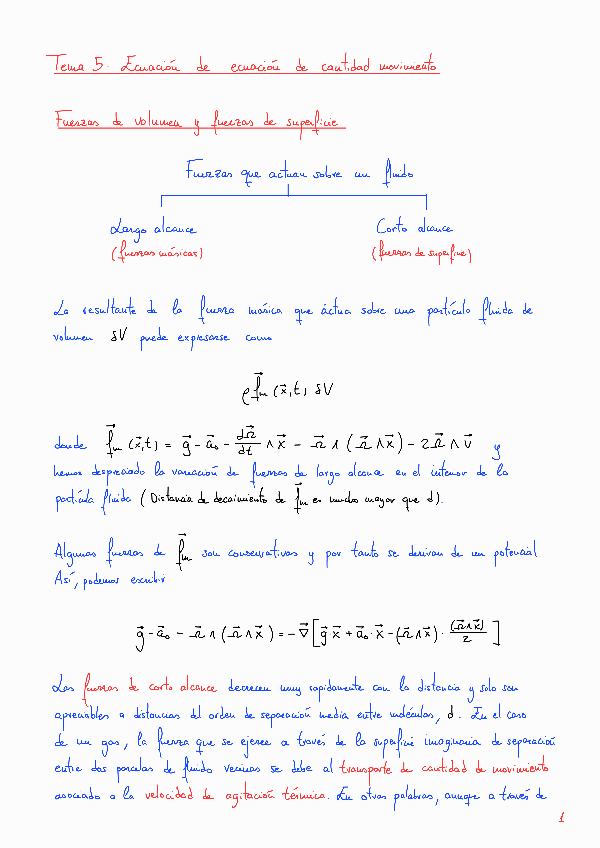 Tema 5. Ecuación de ecuación de cantidad movimiento
Fuerzas de volumen y fuerzas de superficie
Fuerzas que actuan sobre un fluido
Largo alcance Corto alcance
(fuerzas másicas) (fuerzas de superfine)
La resultante de la fuerza másica que áctua sobre una partícula fluida de
volumen δV puede expresarse como
ρ f⃗m (x⃗,t) δV
donde f⃗m (x⃗,t) = g⃗ - a⃗₀ - dΩ⃗/dt ∧ x⃗ - Ω⃗ ∧ (Ω⃗ ∧ x⃗) - 2Ω⃗ ∧ v⃗ y
hemos despreciado la variación de fuerzas de largo alcance en el interior de la
partícula fluida (Distancia de decaimiento de f⃗m es mucho mayor que d).
Algunas fuerzas de f⃗m son conservativas y por tanto se derivan de un potencial
Así, podemos escribir
g⃗ - a⃗₀ - Ω⃗ ∧ (Ω⃗ ∧ x⃗) = -∇⃗ [g⃗ x⃗ + a⃗₀ · x⃗ - (Ω⃗ ∧ x⃗) · (Ω⃗ ∧ x⃗)/2]
Las fuerzas de corto alcance decrecen muy rapidamente con la distancia y solo son
apreciables a distancias del orden de separación media entre moléculas, d. En el caso
de un gas, la fuerza que se ejerce a través de la superficie imaginaria de separación
entre dos parcelas de fluido vecinas se debe al transporte de cantidad de movimiento
asociado a la velocidad de agitación térmica. En otras palabras, aunque a través de
1